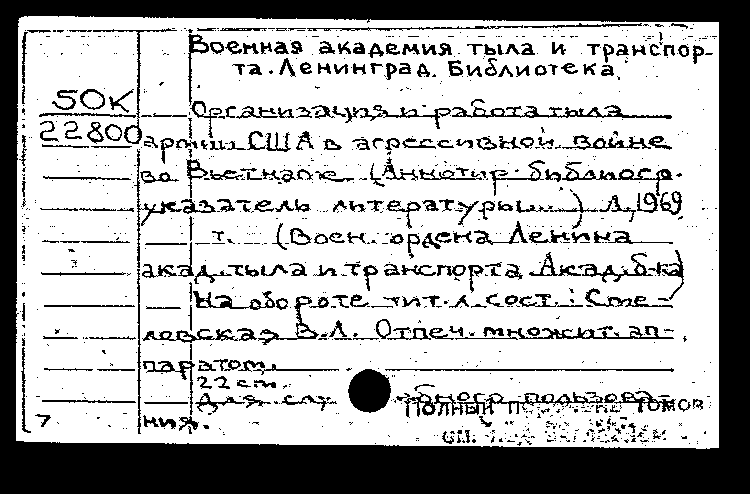 Военная академия тыла и транспор-
та. Ленинград. Библиотека.
50К
22800
Организация и работа тыла
армии США в агрессивной войне
во Вьетнаме (Аннотир. библиогр.
указатель литературы...) Л, 1969
т. (Воен. ордена Ленина
акад. тыла и транспорта. Акад. б-ка)
На обороте тит. л. сост.: Сте-
ловская В.Л. Отпеч. множит. ап-
паратом.
22 cm.
Для слу бного пользова-
ния.
Полный томов
см.
7